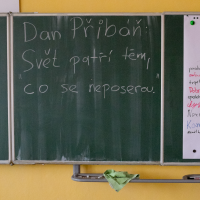 Dan Přibáň:
Svět patří těm,
co se neposerou.